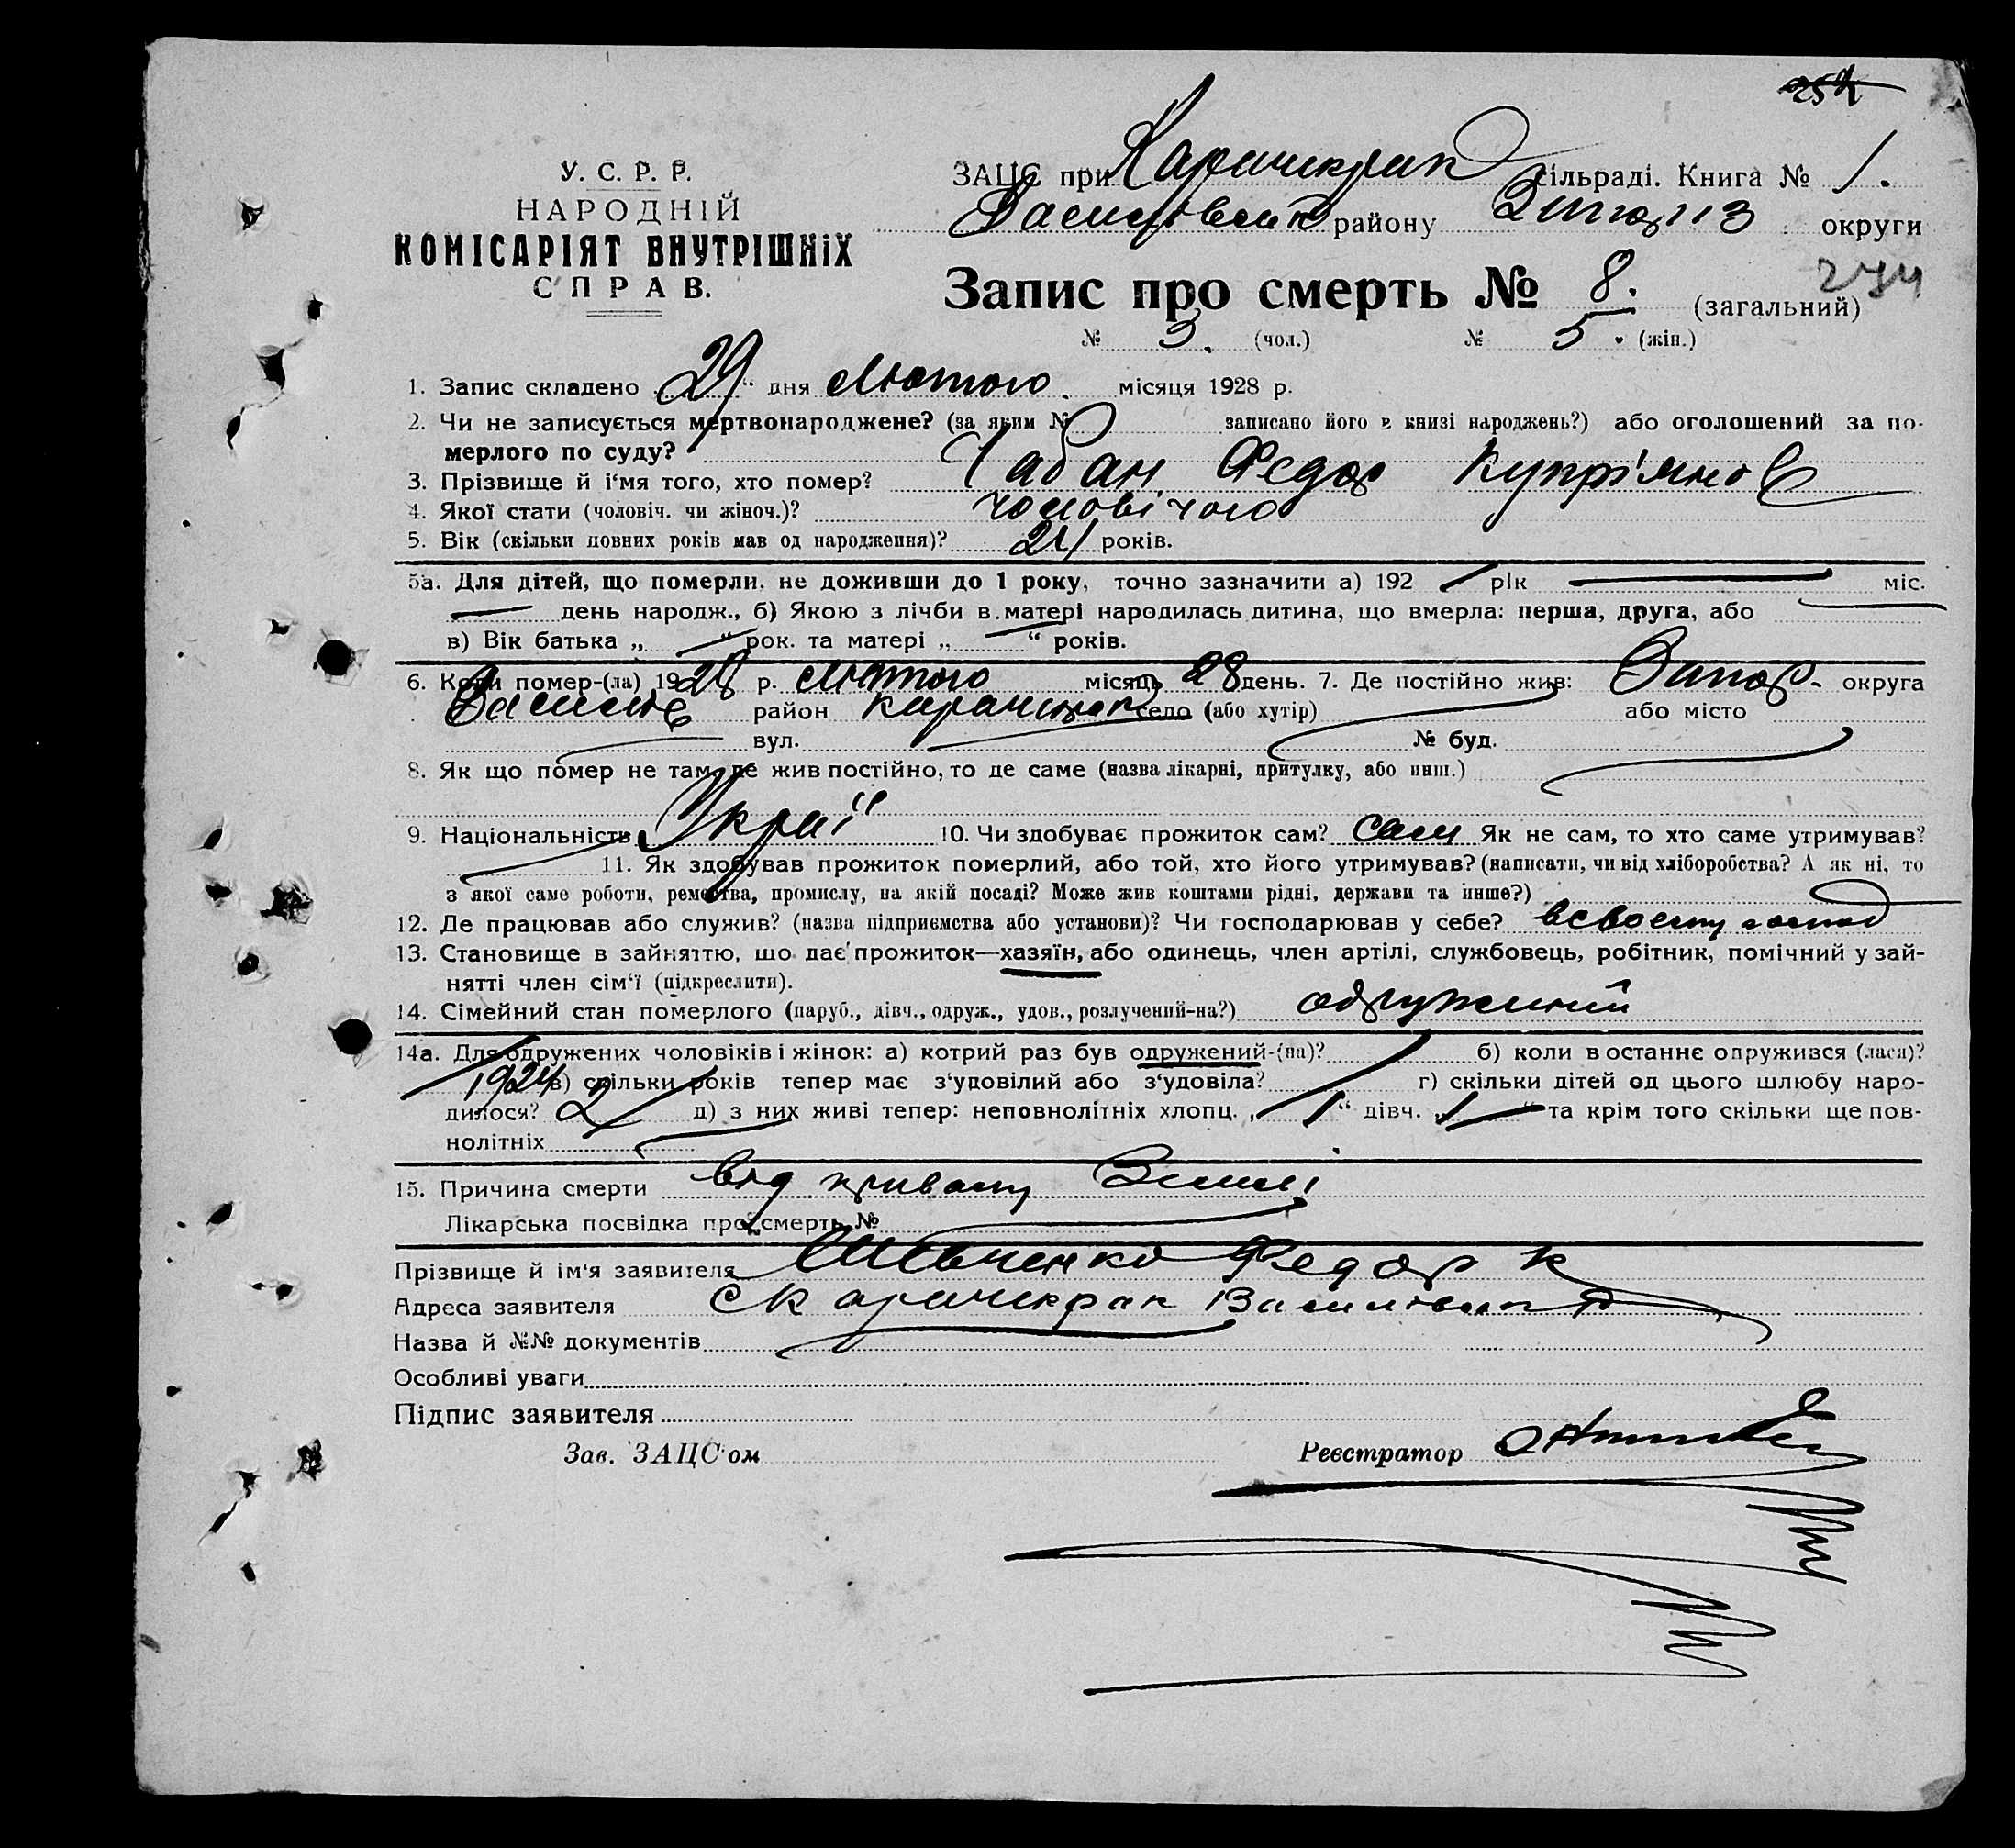 У. С. Р. Р.
НАРОДНІЙ
КОМІСАРІЯТ ВНУТРІШНіХ
СПРАВ.
ЗАЦС при Карачикрак сільраді. Книга № 1.
Василівськ району округи
Запис про смерть № 8. (загальний)
№ 3. (чол.) № 5. (жін.)
1. Запис складено „29“ дня Лютого місяця 1928 р.
2. Чи не записується мертвонароджене? (за яким № записано його в книзі народжень?) або оголошений за по-
мерлого по суду?
3. Прізвище й і‘мя того, хто помер? Чабан Федор Купріянов
4. Якої стати (чоловіч. чи жіноч.)? чоловічого
5. Вік (скільки повних років мав од народження)? 24 років.
5а. Для дітей, що померли, не доживши до 1 року, точно зазначити а) 192 рік міс.
день народж., б) Якою з лічби в матері народилась дитина, що вмерла: перша, друга, або
в) Вік батька „ “ рок. та матері „ “ років.
6. Коли помер-(ла) 1928 р. Лютого місяць 28 день. 7. Де постійно жив: Запор. округа
Василів район Карачикрак село (або хутір) або місто
вул. № буд.
8. Як що помер не там, де жив постійно, то де саме (назва лікарні, притулку, або инш.)
9. Національність Украї 10. Чи здобуває прожиток сам? сам Як не сам, то хто саме утримував?
11. Як здобував прожиток померлий, або той, хто його утримував? (написати, чи від хліборобства? А як ні, то
з якої саме роботи, ремества, промислу, на якій посаді? Може жив коштами рідні, держави та инше?)
12. Де працював або служив? (назва підприємства або установи)? Чи господарював у себе? всвоему господ
13. Становище в зайняттю, що дає прожиток—хазяїн, або одинець, член артілі, службовець, робітник, помічний у зай-
нятті член сім‘ї (підкреслити).
14. Сімейний стан померлого (паруб., дівч., одруж., удов., розлучений-на?) одружиний
14а. Для одружених чоловіків і жінок: а) котрий раз був одружений-(на)? 1 б) коли востаннє одружився (лася)?
1924 в) скільки років тепер має з‘удовілий або з‘удовіла? г) скільки дітей од цього шлюбу наро-
дилося? 2 д) з них живі тепер: неповнолітніх хлопц. „1“ дівч. „1“ та крім того скільки ще пов-
нолітніх
15. Причина смерти від привалу Землі
Лікарська посвідка про смерть №
Прізвище й ім‘я заявителя Шевченко Федор К
Адреса заявителя с Карачикрак Василівськ р
Назва й №№ документів
Особливі уваги
Підпис заявителя
Зав. ЗАЦС‘ом Реєстратор